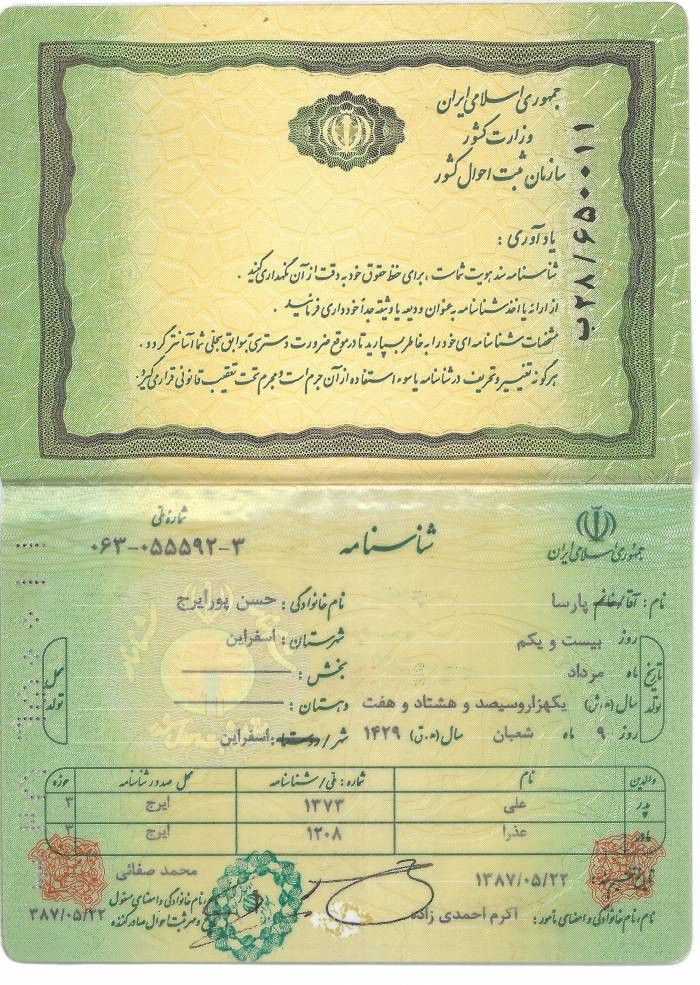 جمهوری اسلامی ایران
وزارت کشور
سازمان ثبت احوال کشور
ب۲۸/۶۵۰۰۱۱
یادآوری :
شناسنامه سند هویت شماست ، برای حفظ حقوق خود به دقت از آن نگهداری کنید .
از ارائه یا اخذ شناسنامه به عنوان ودیعه یا وثیقه جداً خودداری فرمائید .
مشخصات شناسنامه ای خود را به خاطر بسپارید تا در موقع ضرورت دسترسی بسوابق سجلی شما آسانتر گردد .
هرگونه تغییر و تحریف در شناسنامه یا سوء استفاده از آن جرم است و مجرم تحت تعقیب قانونی قرار می گیرد.
جمهوری اسلامی ایران
شناسنامه
شماره ملی
۰۶۳-۰۵۵۵۹۲-۳
نام : آقا/خانم پارسا
نام خانوادگی : حسن پورایرج
تاریخ تولد
روز بیست و یکم
ماه مرداد
سال (ه.ش) یکهزاروسیصد و هشتاد و هفت
روز ۹ ماه شعبان سال (ه.ق) ۱۴۲۹
محل تولد
شهرستان : اسفراین
بخش :
دهستان :
شهر/روستا : اسفراین
والدین نام شماره : ملی/شناسنامه محل صدور شناسنامه حوزه
پدر علی ۱۳۷۳ ایرج ۳
مادر عذرا ۱۲۰۸ ایرج ۳
۱۳۸۷/۰۵/۲۲
نام، نام خانوادگی و امضای مأمور : اکرم احمدی زاده
محمد صفائی
نام خانوادگی و امضای مسئول
و مهر ثبت احوال صادر کننده
۳۸۷/۰۵/۲۲